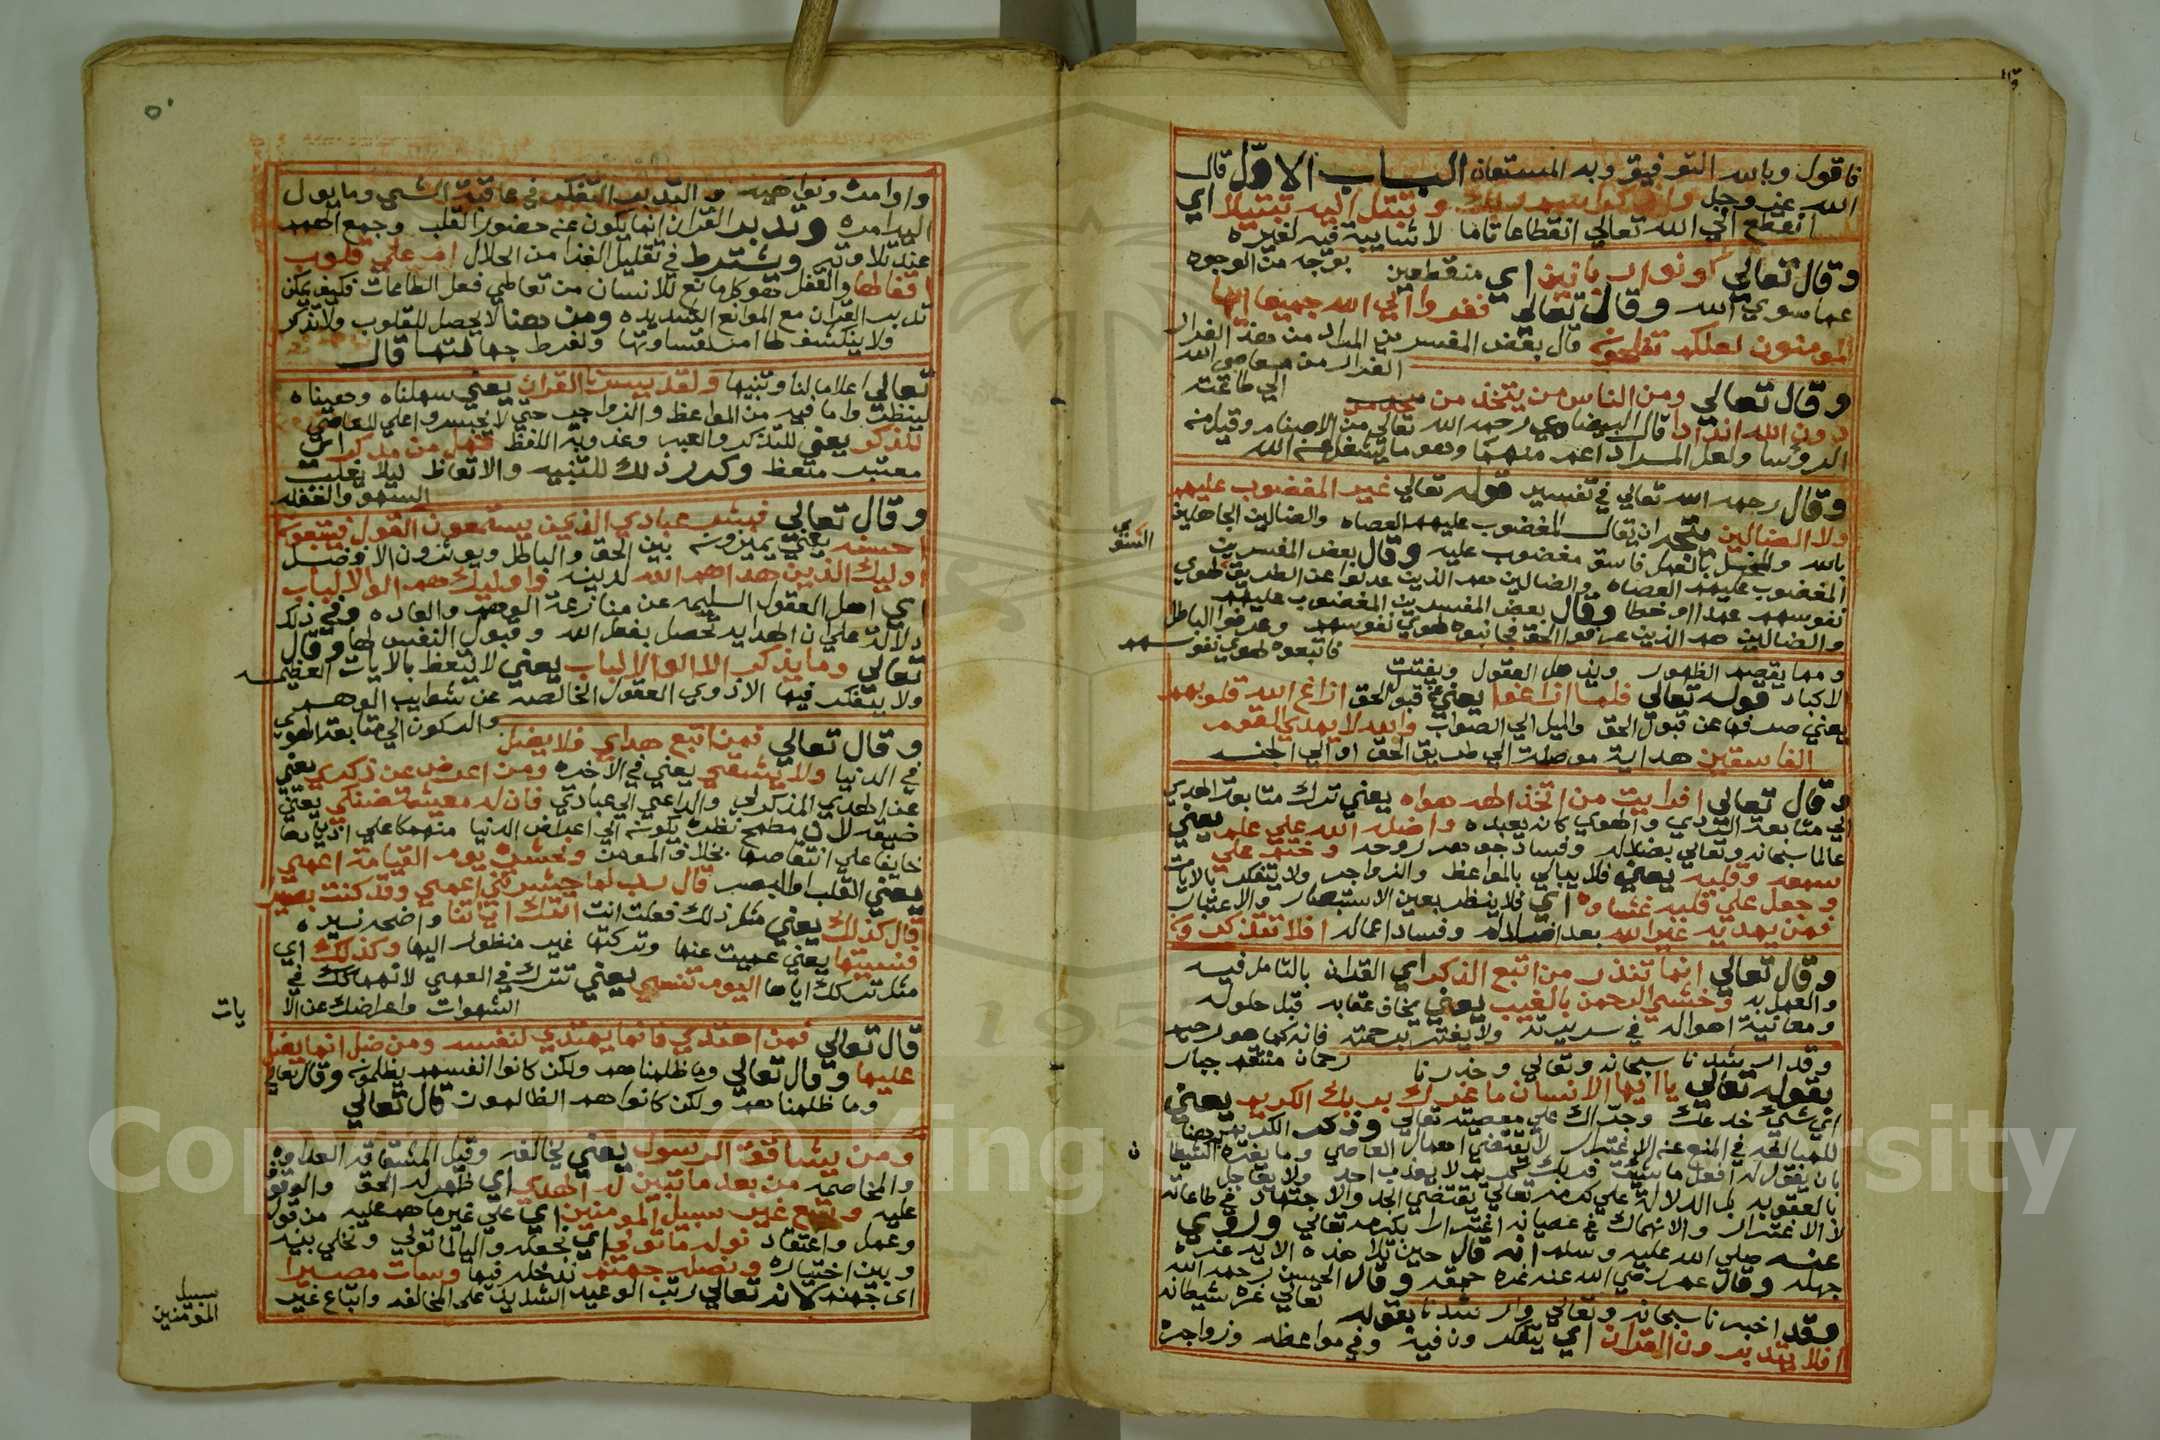 فاقول وبالله التوفيق وبه المستعان الباب الاول قال
الله عز وجل واذكر اسم ربك وتبتل اليه تبتيلا اي
انقطع الي الله تعالي انقطاعا تاما لا شايبة فيه لغيره
بوجه من الوجوه
وقال تعالي كونوا ربانيين اي منقطعين
عما سوي الله وقال تعالي ففروا الي الله جميعا ايها
المومنون لعلكم تفلحون قال بعض المفسرين المراد من هذا الفرار
الفرار من معاصي الله
الي طاعته
وقال تعالي ومن الناس من يتخذ من
دون الله اندادا قال البيضاوي رحمه الله تعالي من الاصنام وقيل من
الروسا ولعل المراد اعم منهما وهو ما يشغل عن الله
وقال رحمه الله تعالي في تفسير قوله تعالي غير المغضوب عليهم
ولا الضالين يتجه ان يقال المغضوب عليهم العصاه والضالين الجاهلين
بالله والمخل بالعمل فاسق مغضوب عليه وقال بعض المفسرين
المغضوب عليهم العصاه والضالين هم الذين عدلوا عن الطريق لهوي
نفوسهم عمدا او خطا وقال بعض المفسرين المغضوب عليهم
والضالين هم الذين عرفوا الحق فجانبوه لهوي نفوسهم وعرفوا الباطل
فاتبعوه لهوي نفوسهم
ومما يقصم الظهور ويذهل العقول ويفتت
الاكباد قوله تعالي فلما زاغوا يعني عن قبول الحق ازاغ الله قلوبهم
يعني صرفها عن قبول الحق والميل الي الصواب والله لا يهدي القوم
الفاسقين هداية موصلة الي طريق الحق او الي الجنه
وقال تعالي افرايت من اتخذ الهه هواه يعني ترك متابعة الهدي
الي متابعة الردي والهوي كانه يعبده واضله الله علي علم يعني
عالما سبحانه وتعالي بضلاله وفساد جوهر روحه وختم علي
سمعه وقلبه يعني فلا يبالي بالمواعظ والزواجر ولا يتفكر بالايات
وجعل علي قلبه غشاوه اي فلا ينظر بعين الاستبصار والاعتبار
فمن يهديه غير الله بعد اضلاله وفساد اعماله افلا تتذكرون
وقال تعالي انما تنذر من اتبع الذكر اي القران بالتامل فيه
والعمل به وخشي الرحمن بالغيب يعني يخاف عقابه قبل حلوله
ومعاينة اهواله في سريرته ولا يغتر برحمته فانه كما هو رحيم
رحمان منتقم جبار
وقد ارشدنا سبحانه وتعالي وحذرنا
بقوله تعالي يا ايها الانسان ما غرك بربك الكريم يعني
اي شي خدعك وجراك علي معصيته تعالي وذكر الكريم هنا
للمبالغه في المنع عن الاغترار لا يقتضي اهمال العاصي وما يغره الشيطان
بان يقول له افعل ما شيت فربك كريم لا يعذب احد ولا يعاجل
بالعقوبه بل الدلالة علي كرمه تعالي يقتضي الجد والاجتهاد في طاعاته
لا الاغترار والانهماك في عصيانه اغترارا بكرمه تعالي وروي
عنه صلي الله عليه وسلم انه قال حين تلا هذه الايه غره
جهله وقال عمر رضي الله عنه غره حمقه وقال الحسن رحمه الله
تعالي غره شيطانه
وقد اخبرنا سبحانه وتعالي وارشدنا بقوله
افلا يتدبرون القران اي يتفكرون فيه وفي مواعظه وزواجره
واوامره ونواهيه والتدبر التفكر في عاقبة الشي وما يول
اليه امره وتدبر القران انما يكون عن حضور القلب وجمع الهم
عند تلاوته ويشترط في تقليل الغذا من الحلال ام علي قلوب
اقفالها والقفل هو كل مانع للانسان من تعاطي فعل الطاعات فكيف يمكن
تدبر القران مع الموانع الشديده ومن هنا لا يحصل للقلوب ولا تذكر
ولا ينكشف لها امر لقساوتها ولفرط جهالتها قال
تعالي اعلاما لنا وتنبيها ولقد يسرنا القران يعني سهلناه وهيناه
لينظروا ما فيه من المواعظ والزواجر حتي لا يجسروا علي المعاصي
للذكر يعني للتذكر والعبر وعذوبة اللفظ فهل من مدكر اي
معتبر متعظ وكرر ذلك للتنبيه والاتعاظ ليلا يغلب
السهو والغفله
وقال تعالي فبشر عبادي الذين يستمعون القول فيتبعون
احسنه يعني يميزون بين الحق والباطل ويوثرون الافضل
اوليك الذين هداهم الله لدينه واوليك هم اولوا الالباب
اي اهل العقول السليمه عن منازعة الوهم والعاده وفي ذلك
دلالة علي ان الهدايه تحصل بفعل الله وقبول النفس لها وقال
تعالي وما يذكر الا اولوا الالباب يعني لا يتعظ بالايات العظيمه
ولا يتفكر فيها الا ذوي العقول الخالصه عن شوايب الوهم
والركون الي متابعة الهوي
وقال تعالي فمن اتبع هداي فلا يضل
في الدنيا ولا يشقي يعني في الاخره ومن اعرض عن ذكري يعني
عن الهدي المذكر لي والداعي الي عبادتي فان له معيشة ضنكي يعني
ضيقه لان مطمح نظره يكون الي اعراض الدنيا منهمكا علي ازديادها
خايفا علي انتقاصها بخلاف المومن ونحشره يوم القيامة اعمي
يعني القلب او البصر قال رب لما حشرتني اعمي وقد كنت بصيرا
قال كذلك يعني مثل ذلك فعلت انت اتتك اياتنا واضحه نيره
فنسيتها يعني عميت عنها وتركتها غير منظور اليها وكذلك اي
مثل تركك اياها اليوم تنسي يعني تترك في العمي لانهماكك في
الشهوات واعراضك عن الا
يات
قال تعالي فمن اهتدي فانما يهتدي لنفسه ومن ضل انما يضل
عليها وقال تعالي وما ظلمناهم ولكن كانوا انفسهم يظلمون وقال تعالي
وما ظلمناهم ولكن كانوا هم الظالمون قال تعالي
ومن يشاقق الرسول يعني يخالفه وقيل المشاققه العداوه
والمخاصمه من بعد ما تبين له الهدي اي ظهر له الحق والوقوف
عليه ويتبع غير سبيل المومنين اي علي غير ما هم عليه من قول
وعمل واعتقاد نوله ما تولي اي نجعله واليا لما تولي ونخلي بينه
وبين اختياره ونصله جهنم ندخله فيها وسات مصيرا
اي جهنم لانه تعالي رتب الوعيد الشديد علي المخالفه واتباع غير
سبيل
المومنين
Copyright © King Saud University
1957